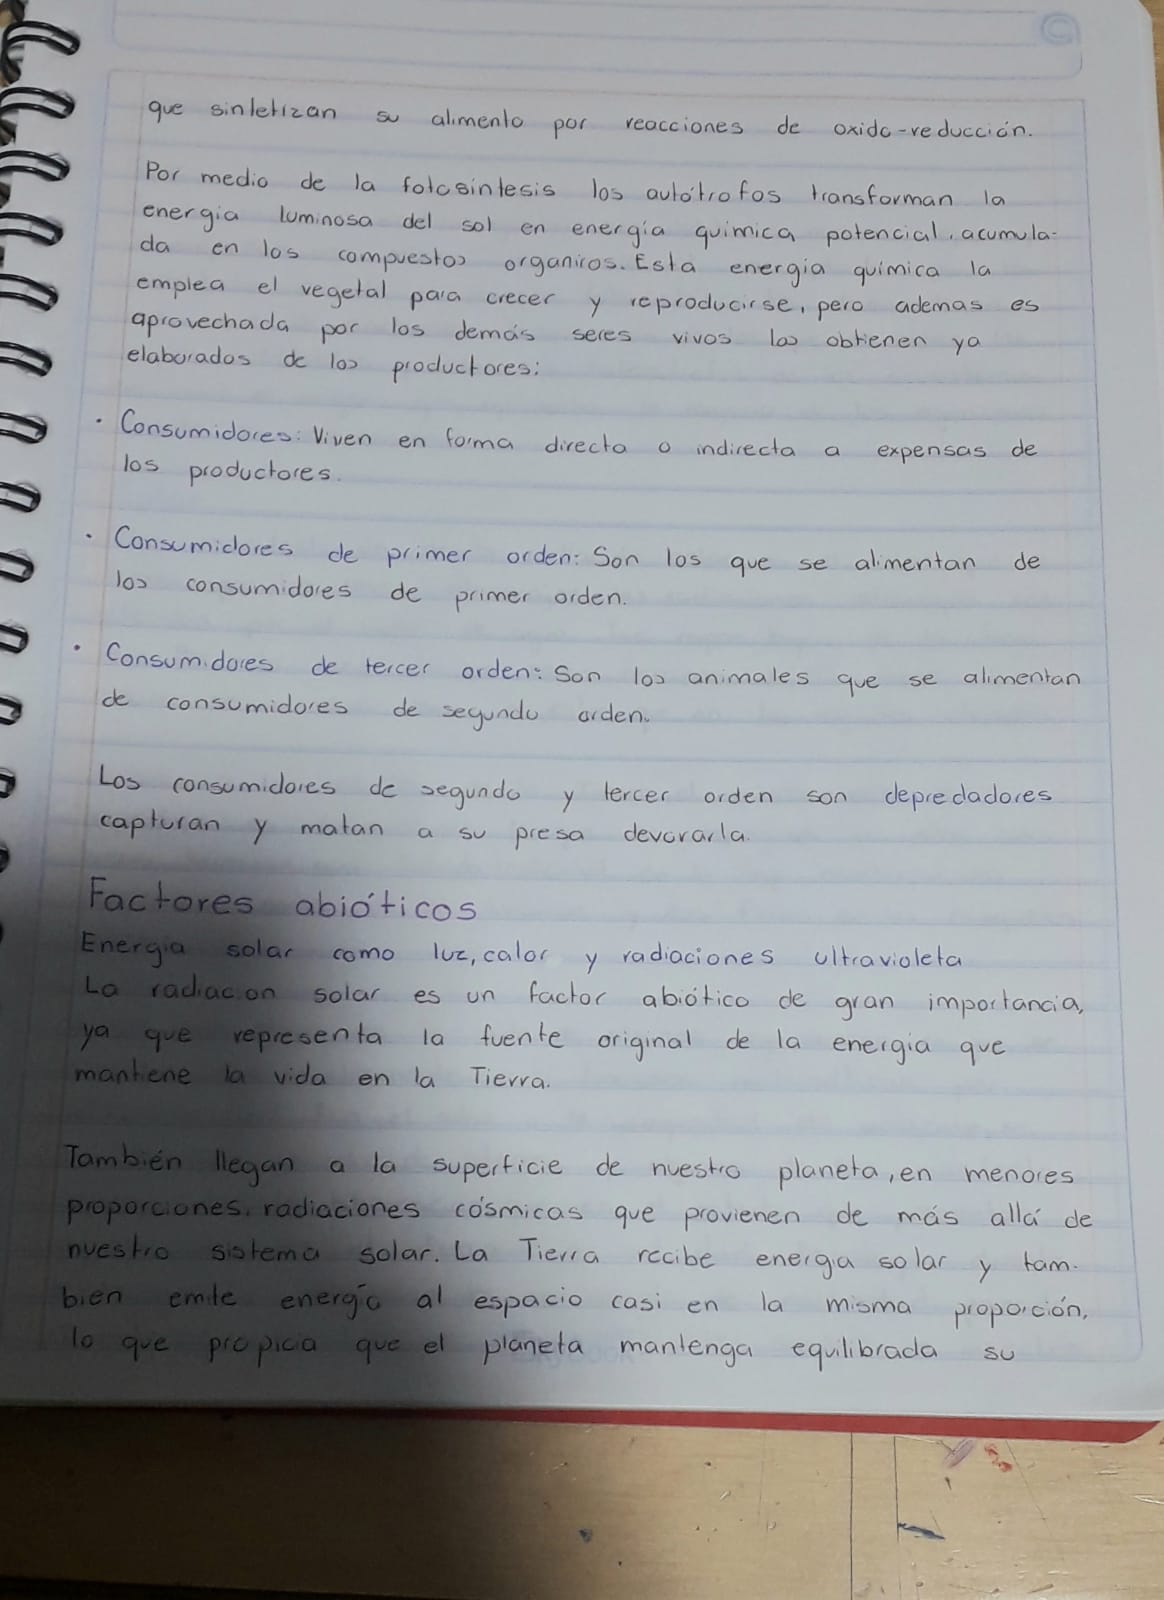 que sintetizan su alimento por reacciones de oxido-reducción.
Por medio de la fotosintesis los autótrofos transforman la
energía luminosa del sol en energía química potencial, acumula-
da en los compuestos organicos. Esta energia química la
emplea el vegetal para crecer y reproducirse, pero ademas es
aprovechada por los demás seres vivos los obtienen ya
elaborados de los productores:
• Consumidores: Viven en forma directa o indirecta a expensas de
los productores.
• Consumidores de primer orden: Son los que se alimentan de
los consumidores de primer orden.
• Consumidores de tercer orden: Son los animales que se alimentan
de consumidores de segundo orden.
Los consumidores de segundo y tercer orden son depredadores
capturan y matan a su presa devorarla.
Factores abióticos
Energia solar como luz, calor y radiaciones ultravioleta
La radiacion solar es un factor abiótico de gran importancia,
ya que representa la fuente original de la energia que
mantiene la vida en la Tierra.
También llegan a la superficie de nuestro planeta, en menores
proporciones, radiaciones cósmicas que provienen de más allá de
nuestro sistema solar. La Tierra recibe energa solar y tam-
bien emite energía al espacio casi en la misma proporción,
lo que propicia que el planeta mantenga equilibrada su